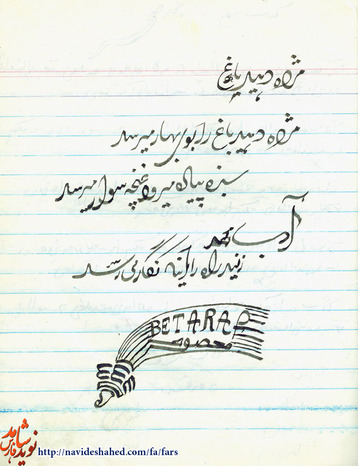 مژده دهید باغ
مژده دهید باغ را بوی بهار میرسد
سبزه پیاده میرود غنچه سوار میرسد
آب زنید راه را اینه نگار می رسد
BETARAP
نوید شاهد فارس
http://navideshahed.com/fa/fars